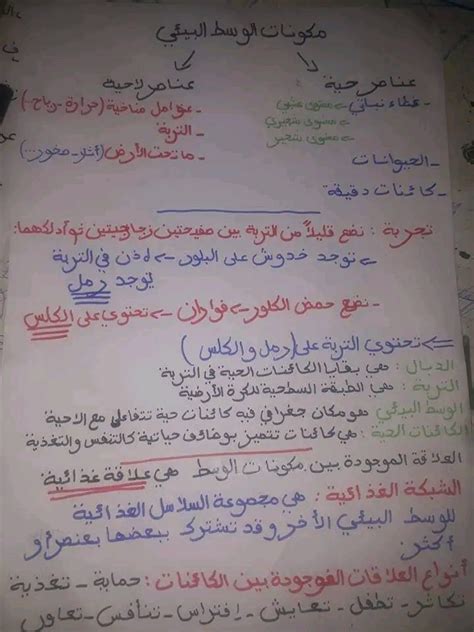 مكونات الوسط البيئي
عناصر حية
عناصر لاحية
- غطاء نباتي ← مستوى عشبي
← مستوى شجيري
← مستوى شجري
- الحيوانات
- كائنات دقيقة
- عوامل مناخية (حرارة - رياح - )
- التربة
- ما تحت الأرض (صخور...)
تجربة : نضع قليلاً من التربة بين صفيحتين زجاجيتين
← توجد خدوش على البلور ← إذن في التربة
يوجد رمل
- نضع حمض الكلور ← فوران ← تحتوي على الكلس
⇐ تحتوي التربة على (رمل و الكلس)
الدبال : هي بقايا الكائنات الحية في التربة
التربة : هي الطبقة السطحية للكرة الأرضية
الوسط البيئي هو مكان جغرافي فيه كائنات حية تتفاعل مع الاحية
الكائنات الحية : هي كائنات تتميز بوظائف حياتية كالتنفس والتغذية
العلاقة الموجودة بين مكونات الوسط هي علاقة غذائية
الشبكة الغذائية : هي مجموعة السلاسل الغذائية
للوسط البيئي الأخر وقد تشترك ببعضها بعنصر أو
أكثر.
أنواع العلاقات الموجودة بين الكائنات : حماية - تغذية
تكاثر - تطفل - تعايش - إفتراس - تنافس - تعاون